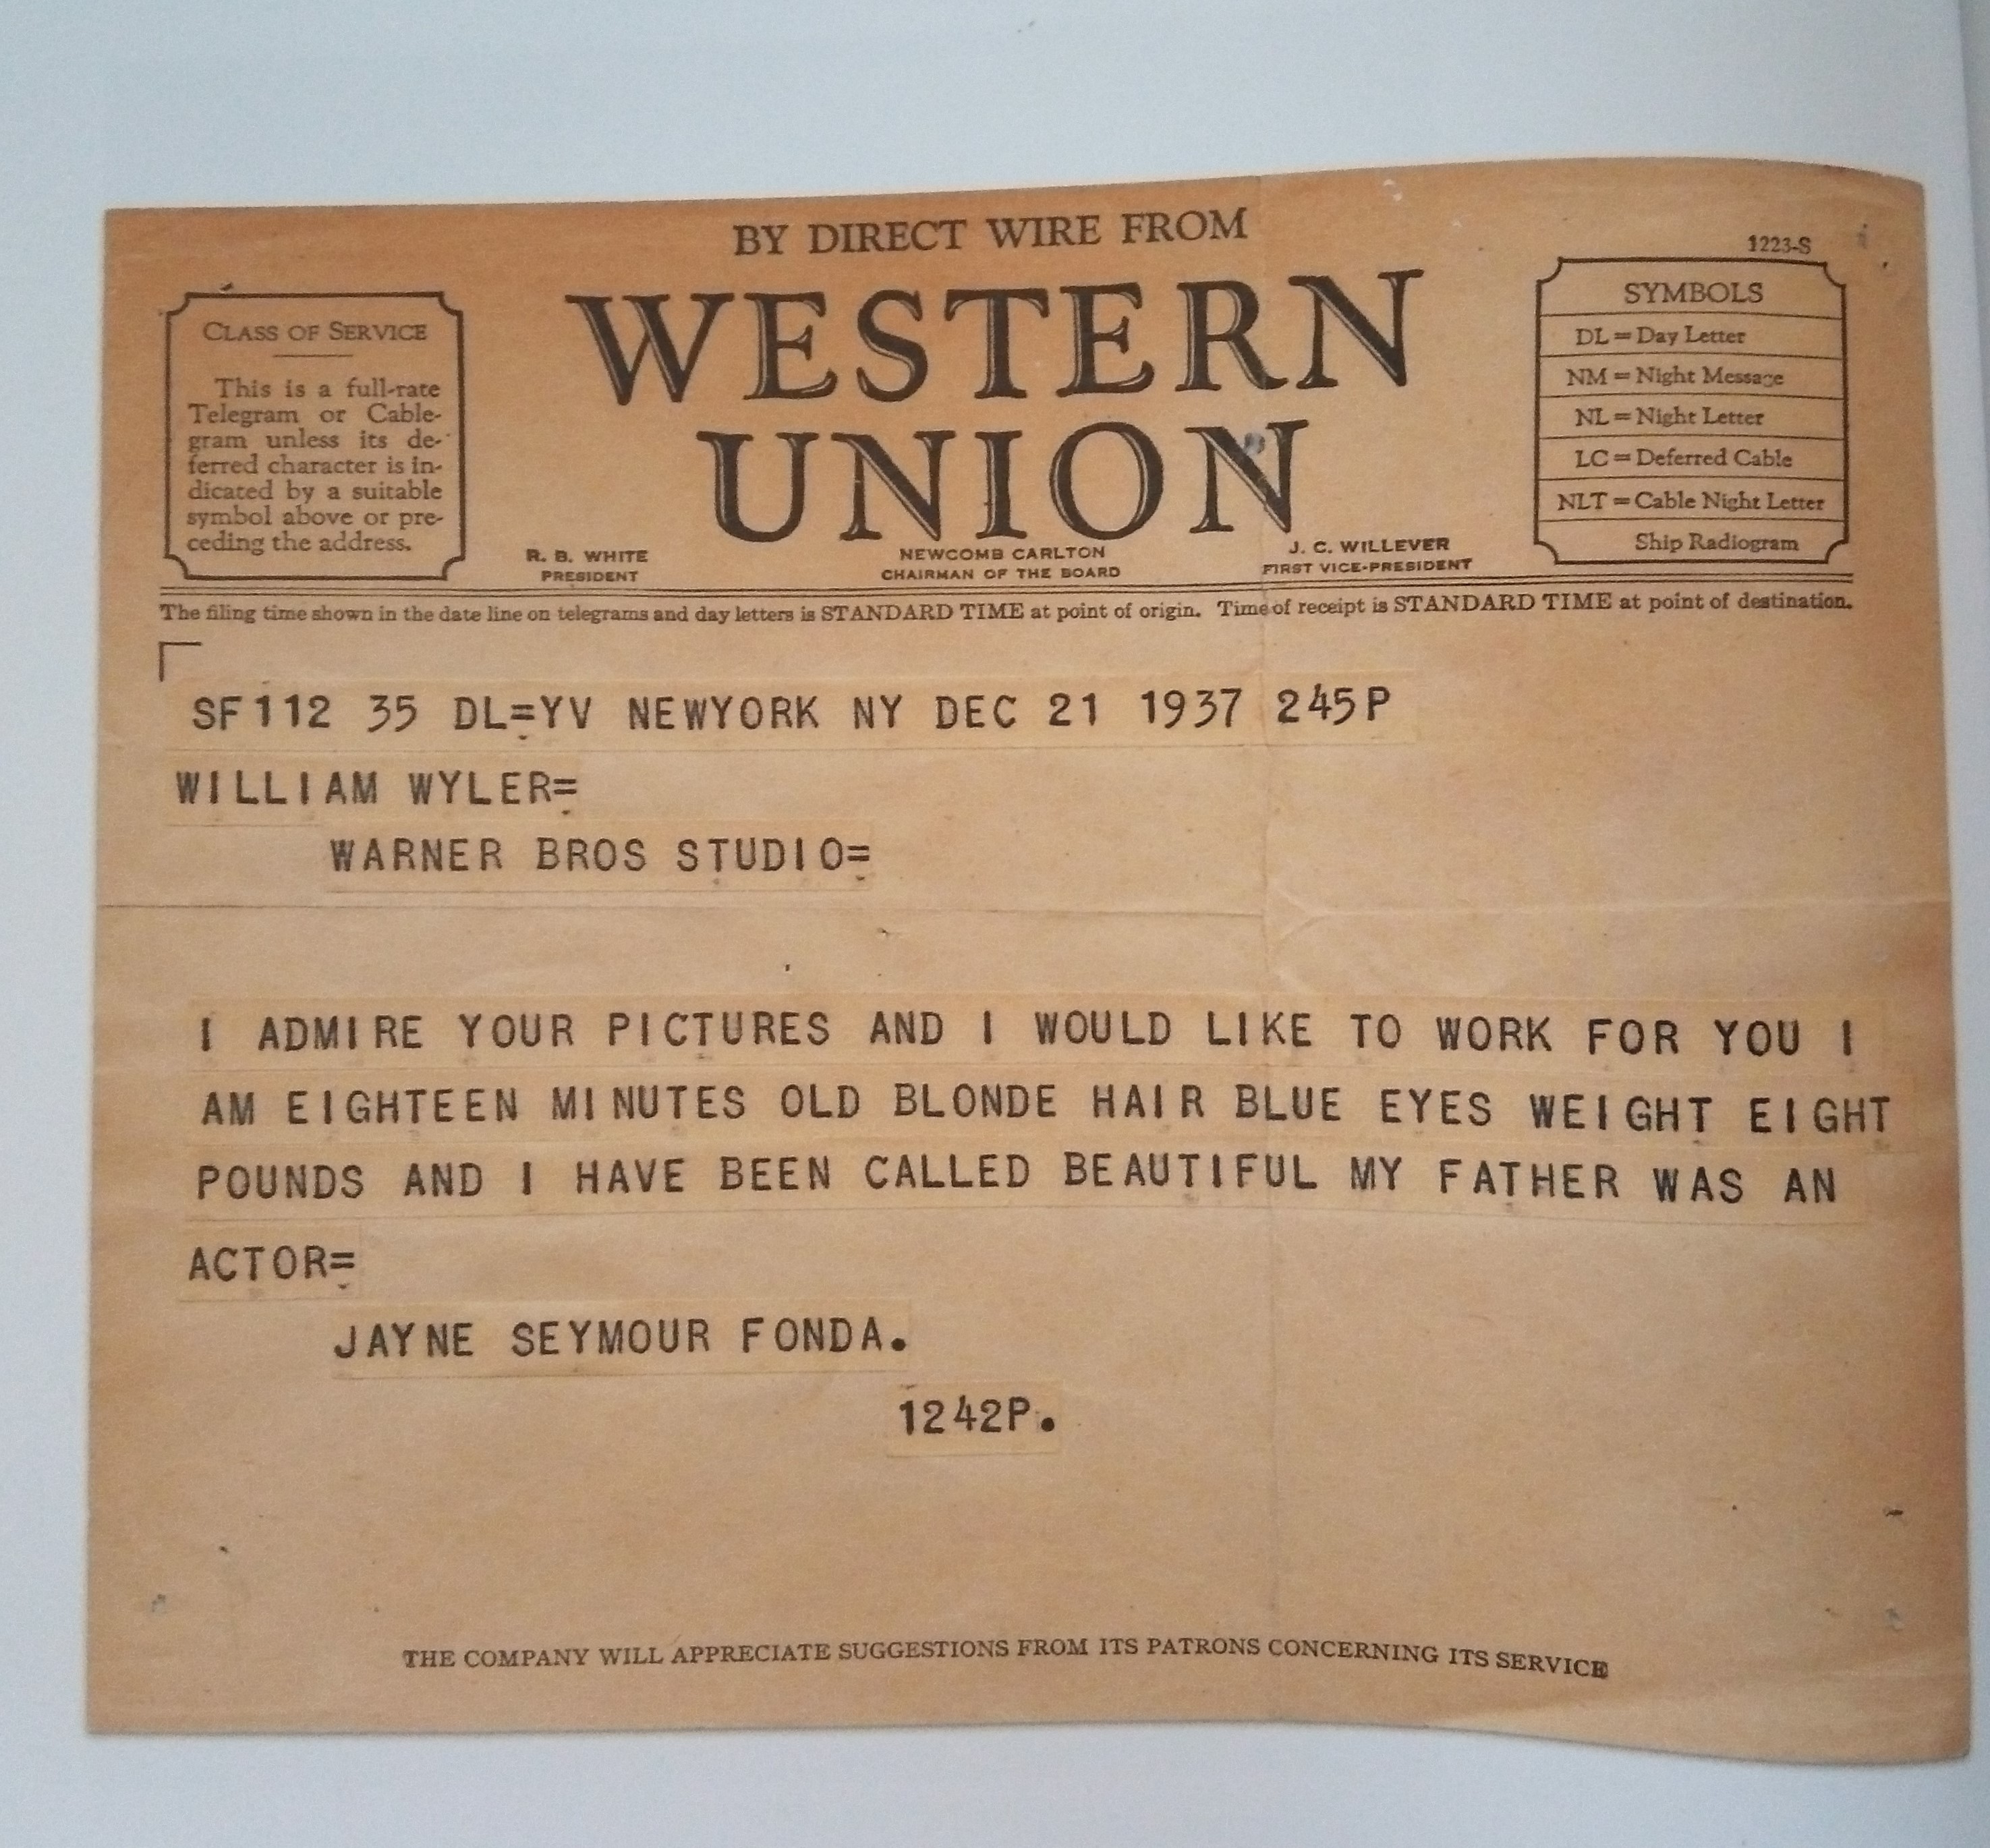 BY DIRECT WIRE FROM
1223-S
WESTERN
UNION
CLASS OF SERVICE
This is a full-rate
Telegram or Cable-
gram unless its de-
ferred character is in-
dicated by a suitable
symbol above or pre-
ceding the address.
R. B. WHITE
PRESIDENT
NEWCOMB CARLTON
CHAIRMAN OF THE BOARD
J. C. WILLEVER
FIRST VICE-PRESIDENT
SYMBOLS
DL = Day Letter
NM = Night Message
NL = Night Letter
LC = Deferred Cable
NLT = Cable Night Letter
Ship Radiogram
The filing time shown in the date line on telegrams and day letters is STANDARD TIME at point of origin. Time of receipt is STANDARD TIME at point of destination.
SF112 35 DL=YV NEWYORK NY DEC 21 1937 245P
WILLIAM WYLER=
WARNER BROS STUDIO=
I ADMIRE YOUR PICTURES AND I WOULD LIKE TO WORK FOR YOU I
AM EIGHTEEN MINUTES OLD BLONDE HAIR BLUE EYES WEIGHT EIGHT
POUNDS AND I HAVE BEEN CALLED BEAUTIFUL MY FATHER WAS AN
ACTOR=
JAYNE SEYMOUR FONDA.
1242P.
THE COMPANY WILL APPRECIATE SUGGESTIONS FROM ITS PATRONS CONCERNING ITS SERVICE